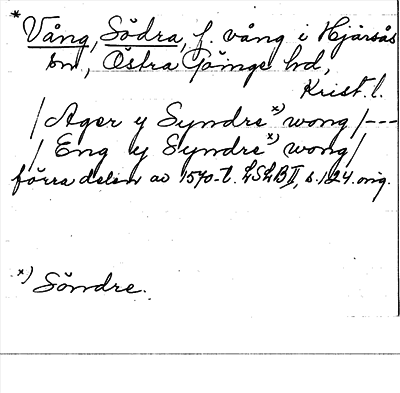 * Vång, Södra, f. vång i Hjärsås
sn, Östra Göinge hd,
Krist. l.
/ Ager y Syndre x) wong /---
/ Eng y Syndre x) wong /
förra delen av 1570-t. LSLB II, s. 124. orig.
x) Söndre.